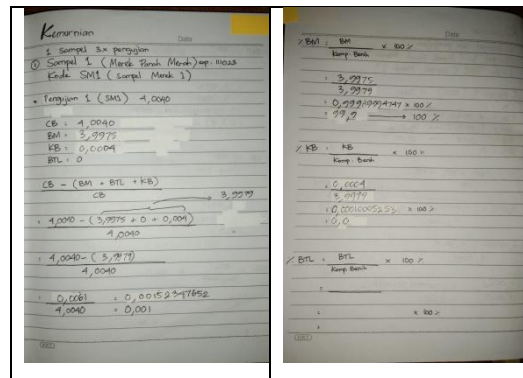 Kemurnian
Date
1 Sampel 3x pengujian
① Sampel 1 (Merek Panah Merah) exp. 111023
Kode SM1 (Sampel Merek 1)
• Pengujian 1 (SM1) 4,0040
CB = 4,0040
BM = 3,9975
KB = 0,0004
BTL = 0
CB - (BM + BTL + KB)
CB
3,9979
= 4,0040 - (3,9975 + 0 + 0,004)
4,0040
= 4,0040 - (3,9979)
4,0040
= 0,0061 = 0,00152347652
4,0040 = 0,001
Date
% BM = BM x 100 %
Komp. Benih
= 3,9975
3,9979
= 0,99989994747 x 100 %
= 99,9 → 100 %
% KB = KB x 100 %
Komp. Benih
= 0,0004
3,9979
= 0,00010005253 x 100 %
= 0,0
% BTL = BTL x 100 %
Komp Benih
=
= x 100 %
=